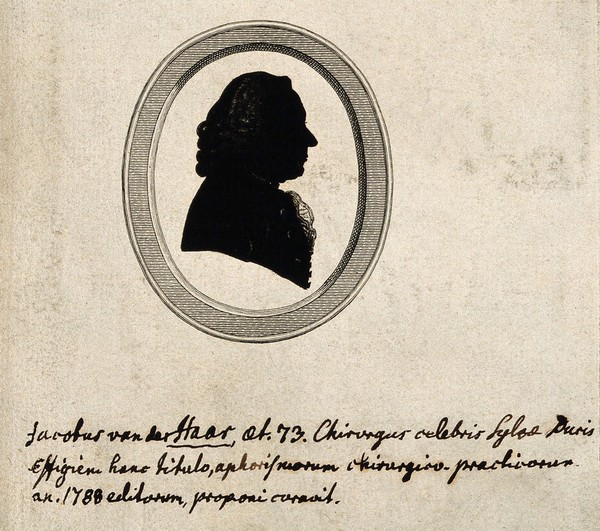 Jacobus van der Haar, æt. 73. Chirurgus celebris Sylvæ Ducis
Effigiem hanc titulo, aphorismorum chirurgico-practicorum
an. 1788 editorum, proponi curavit.